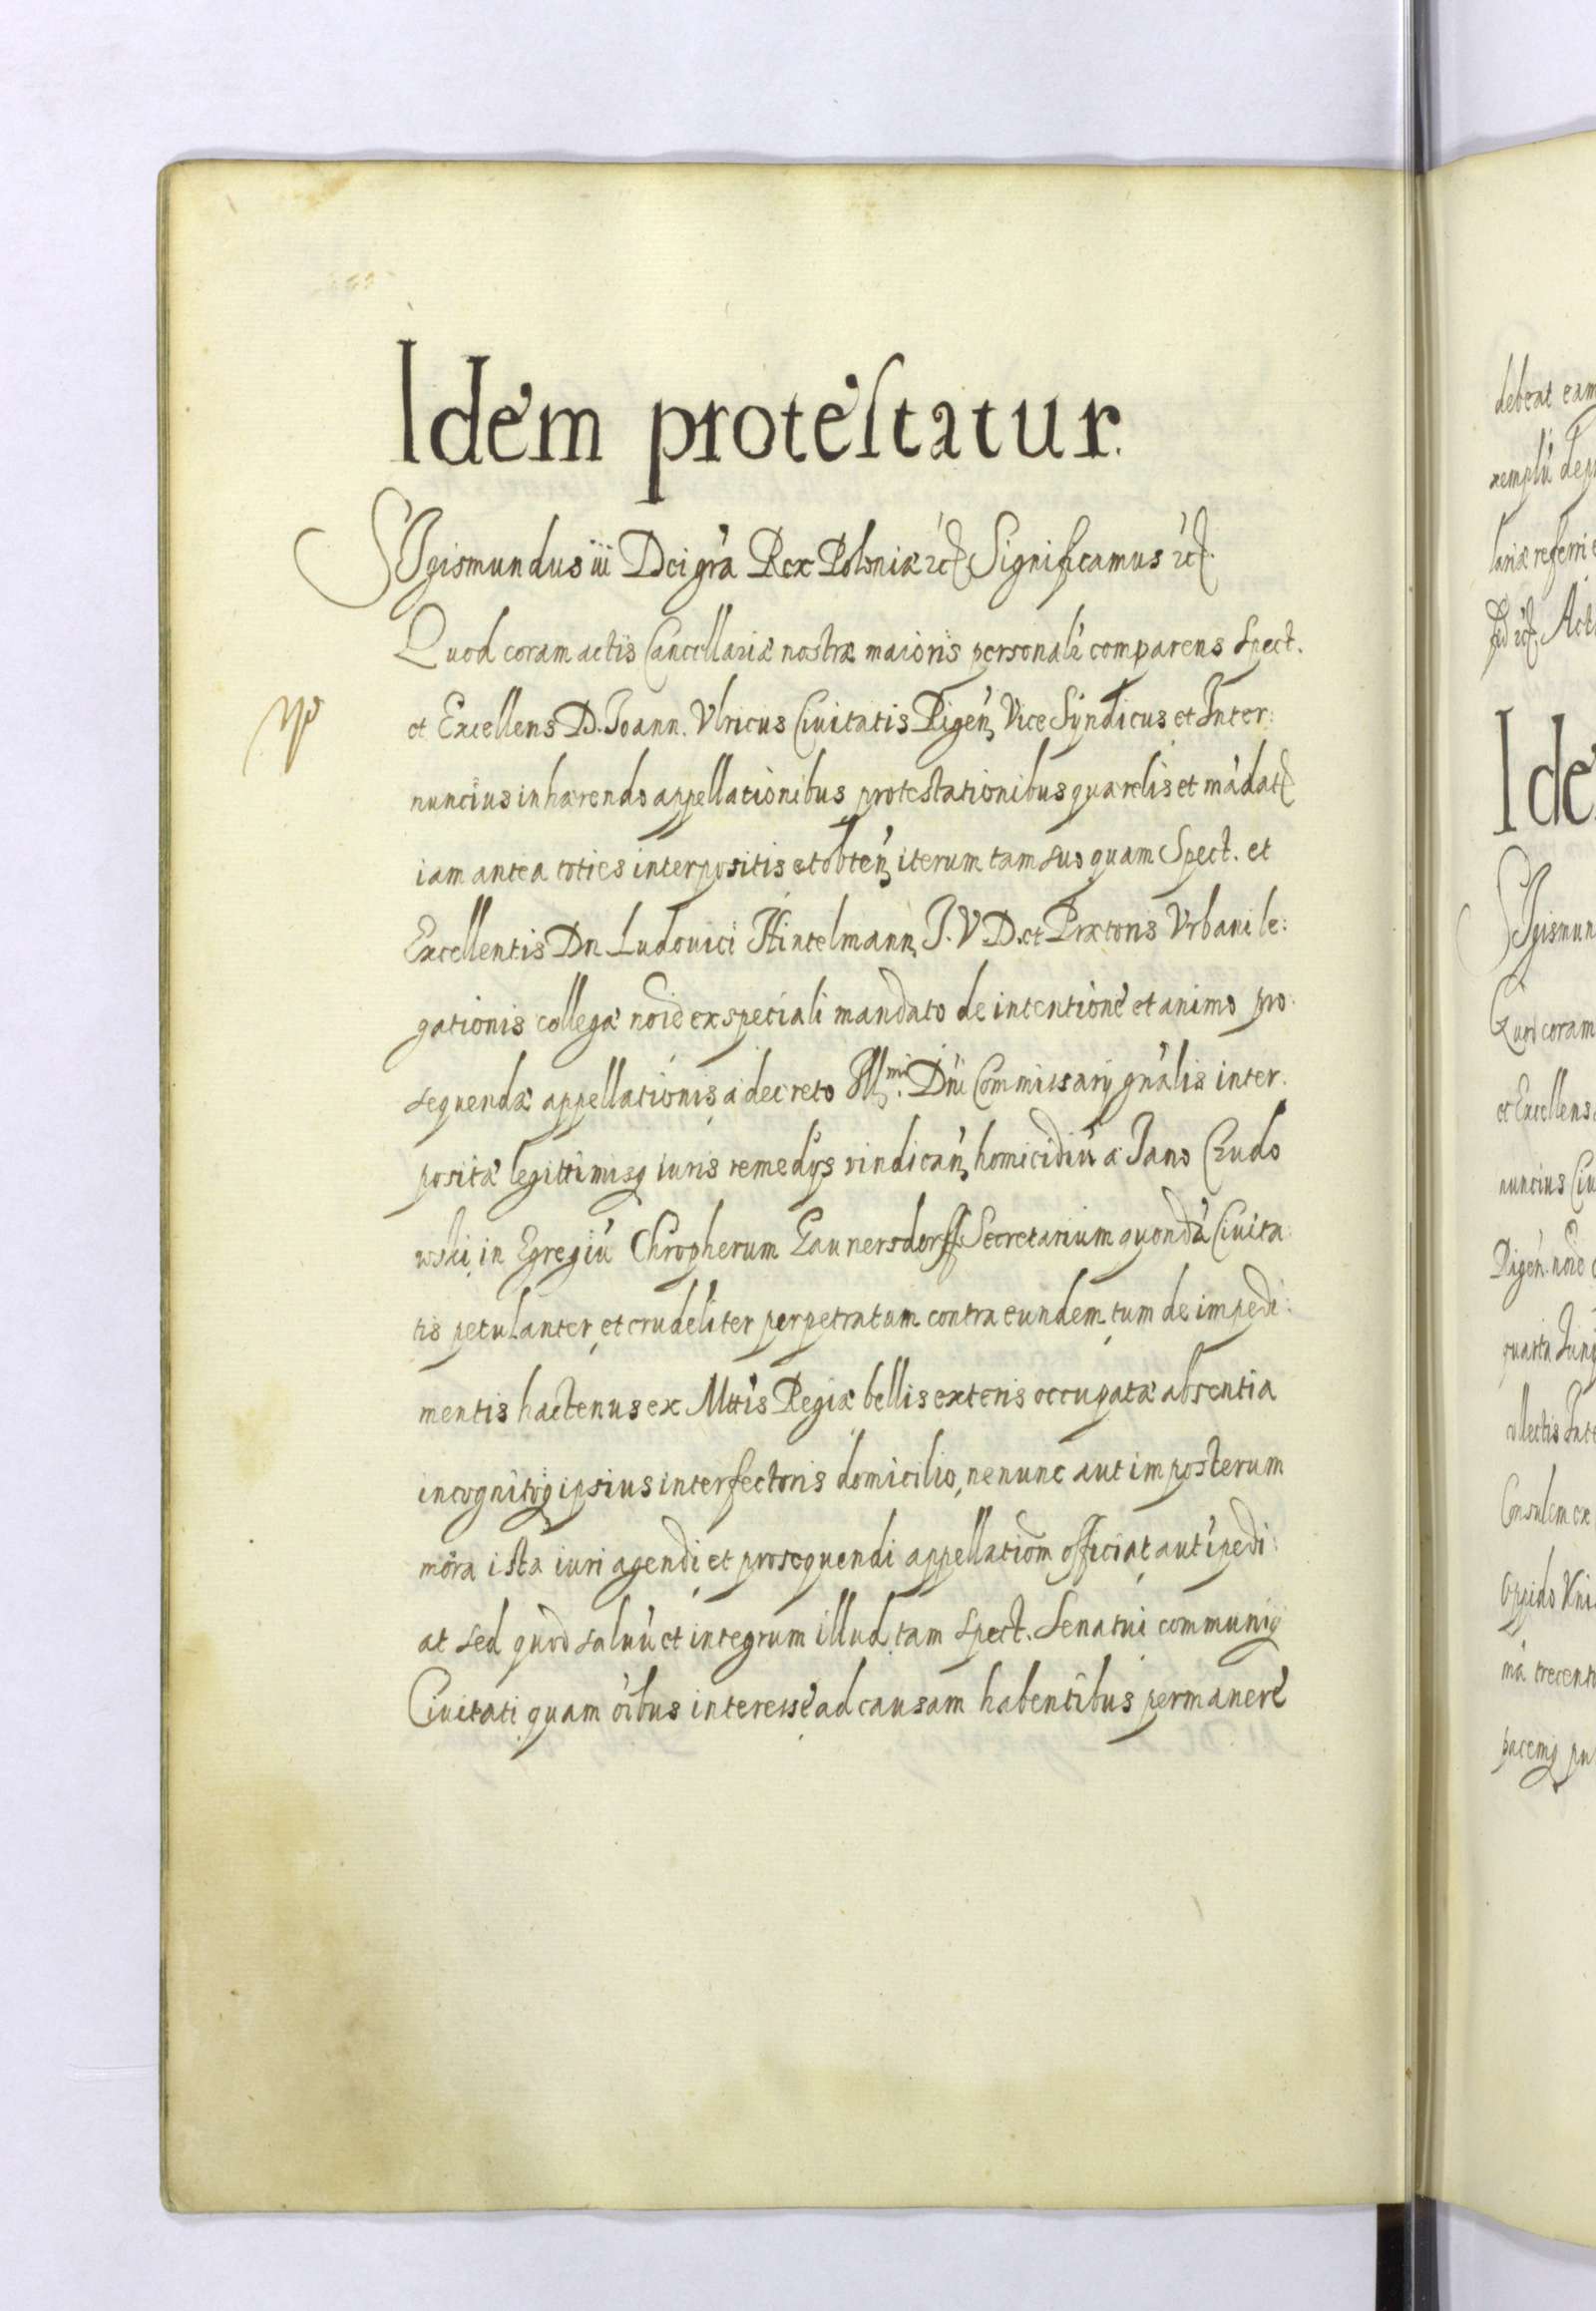 Idem protestatur.
SIgismundus iii Dei gr̃a Rex Poloniæ ꝛc̃. Significamus ꝛc̃.
Quod coram actis Cancellariæ nostræ maioris personalr̃ comparens Spect.
et Excellens D. Joann. Vlricus Ciuitatis Rigeñ Vice Syndicus et Inter:
nuncius inhærendo appellationibus protestationibus quærelis et mãdat
iam antea toties interpositis et obteñ iterum tam suo quam Spect. et
Excellentis Dn. Ludouici Hintelmann J. V. D. et Prætoris Vrbani le:
gationis collegæ noĩe ex speciali mandato de intentione et animo pro:
sequendæ appellationis a decreto Ill.mi Dñi Commissarij gñalis inter:
positæ legittimisq iuris remedijs vindicañ homicidiũ a Jano Czudo
wski in Egregiũ Chropherum Launersdorff Secretarium quondã Ciuita:
tis petulanter et crudeliter perpetratum contra eundem tum de impedi:
mentis hactenus ex Mttis Regiæ bellis exteris occupatæ absentia
incognitoq ipsius interfectoris domicilio, ne nunc aut imposterum
mora ista iuri agendi et prosequendi appellatiom̃ officiat aut ĩpedi:
at sed quod saluũ et integrum illud tam Spect. Senatui communiq
Ciuitati quam oĩbus interesse ad causam habentibus permanere
debeat eam
laniæ referri
Act
Ide
SIgismun
Quod coram
et Excellens
nuncius Ciu
Rigeñ. noĩe
Consulem ex
Oppido
mã trecent
pacemq pu